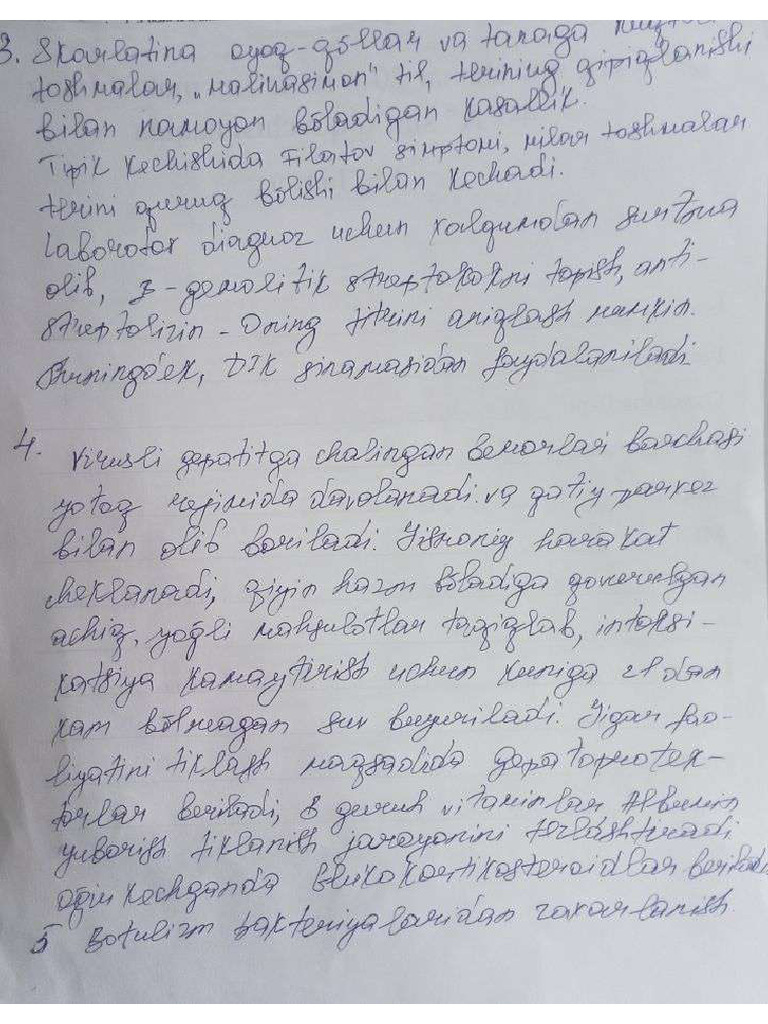 3. Skarlatina oyoq-qo'llar va tanaga
toshmalar, „malinasimon" til, terining qipiqlanishi
bilan namoyon bo'ladigan kasallik.
Tipik kechishida Filatov simptomi, milar toshmalar
terini quruq bo'lishi bilan kechadi.
Laborator diagnoz uchun xalqumdan surtma
olib, β-gemolitik streptokokni topish, anti-
streptolizin-Oning titrini aniqlash mumkin.
Shuningdek, Dik sinamasidan foydalaniladi
4. Virusli gepatitga chalingan bemorlar barchasi
yotoq rejimida davolanadi va qatiy parxez
bilan olib boriladi. Jismoniy harakat
cheklanadi, qiyin hazm bo'ladiga qovurulgan
achiq, yog'li mahsulotlar taqiqlab, intoksi-
katsiya kamaytirish uchun kuniga 2l dan
kam bo'lmagan suv buyuriladi. Jigar fao-
liyatini tiklash maqsadida gepatoprotek-
torlar beriladi, B guruh vitaminlar Albumin
yuborish tiklanish jarayonini tezlashtiradi
og'ir kechganda Glukokortikosteroidlar beriladi
5 Botulizm bakteriyalaridan zaxarlanish.